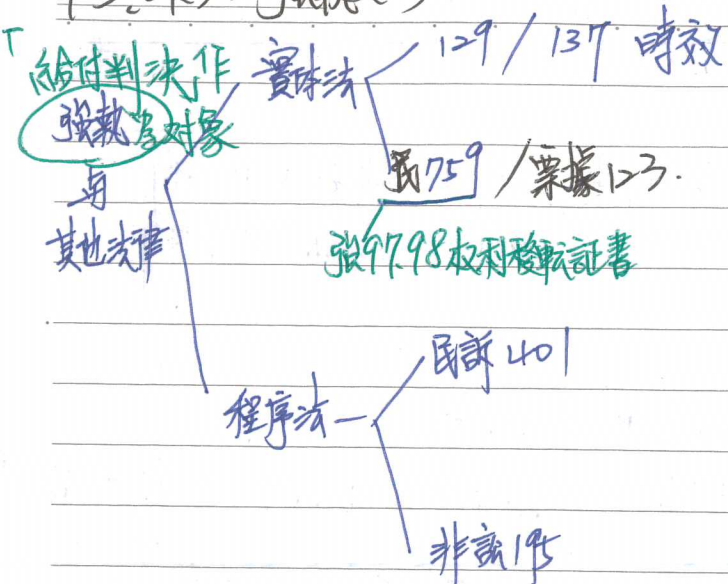 「給付判決作
強執為对象
与
其他法律
實体法
129 / 137 時效
民759 / 票據123.
強97.98权利移転証書
程序法
民訴401
非訟195